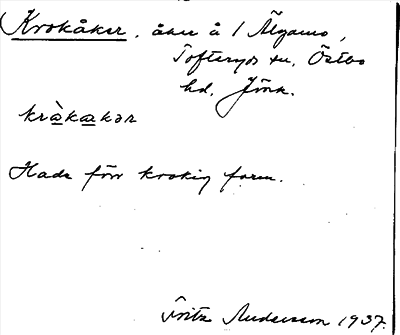 Krokåker, åker å 1 Älganäs,
Tofteryds sn, Östbo
hd, Jönk.
kràkakər
Hade förr krokig form.
Fritz Andersson 1937.